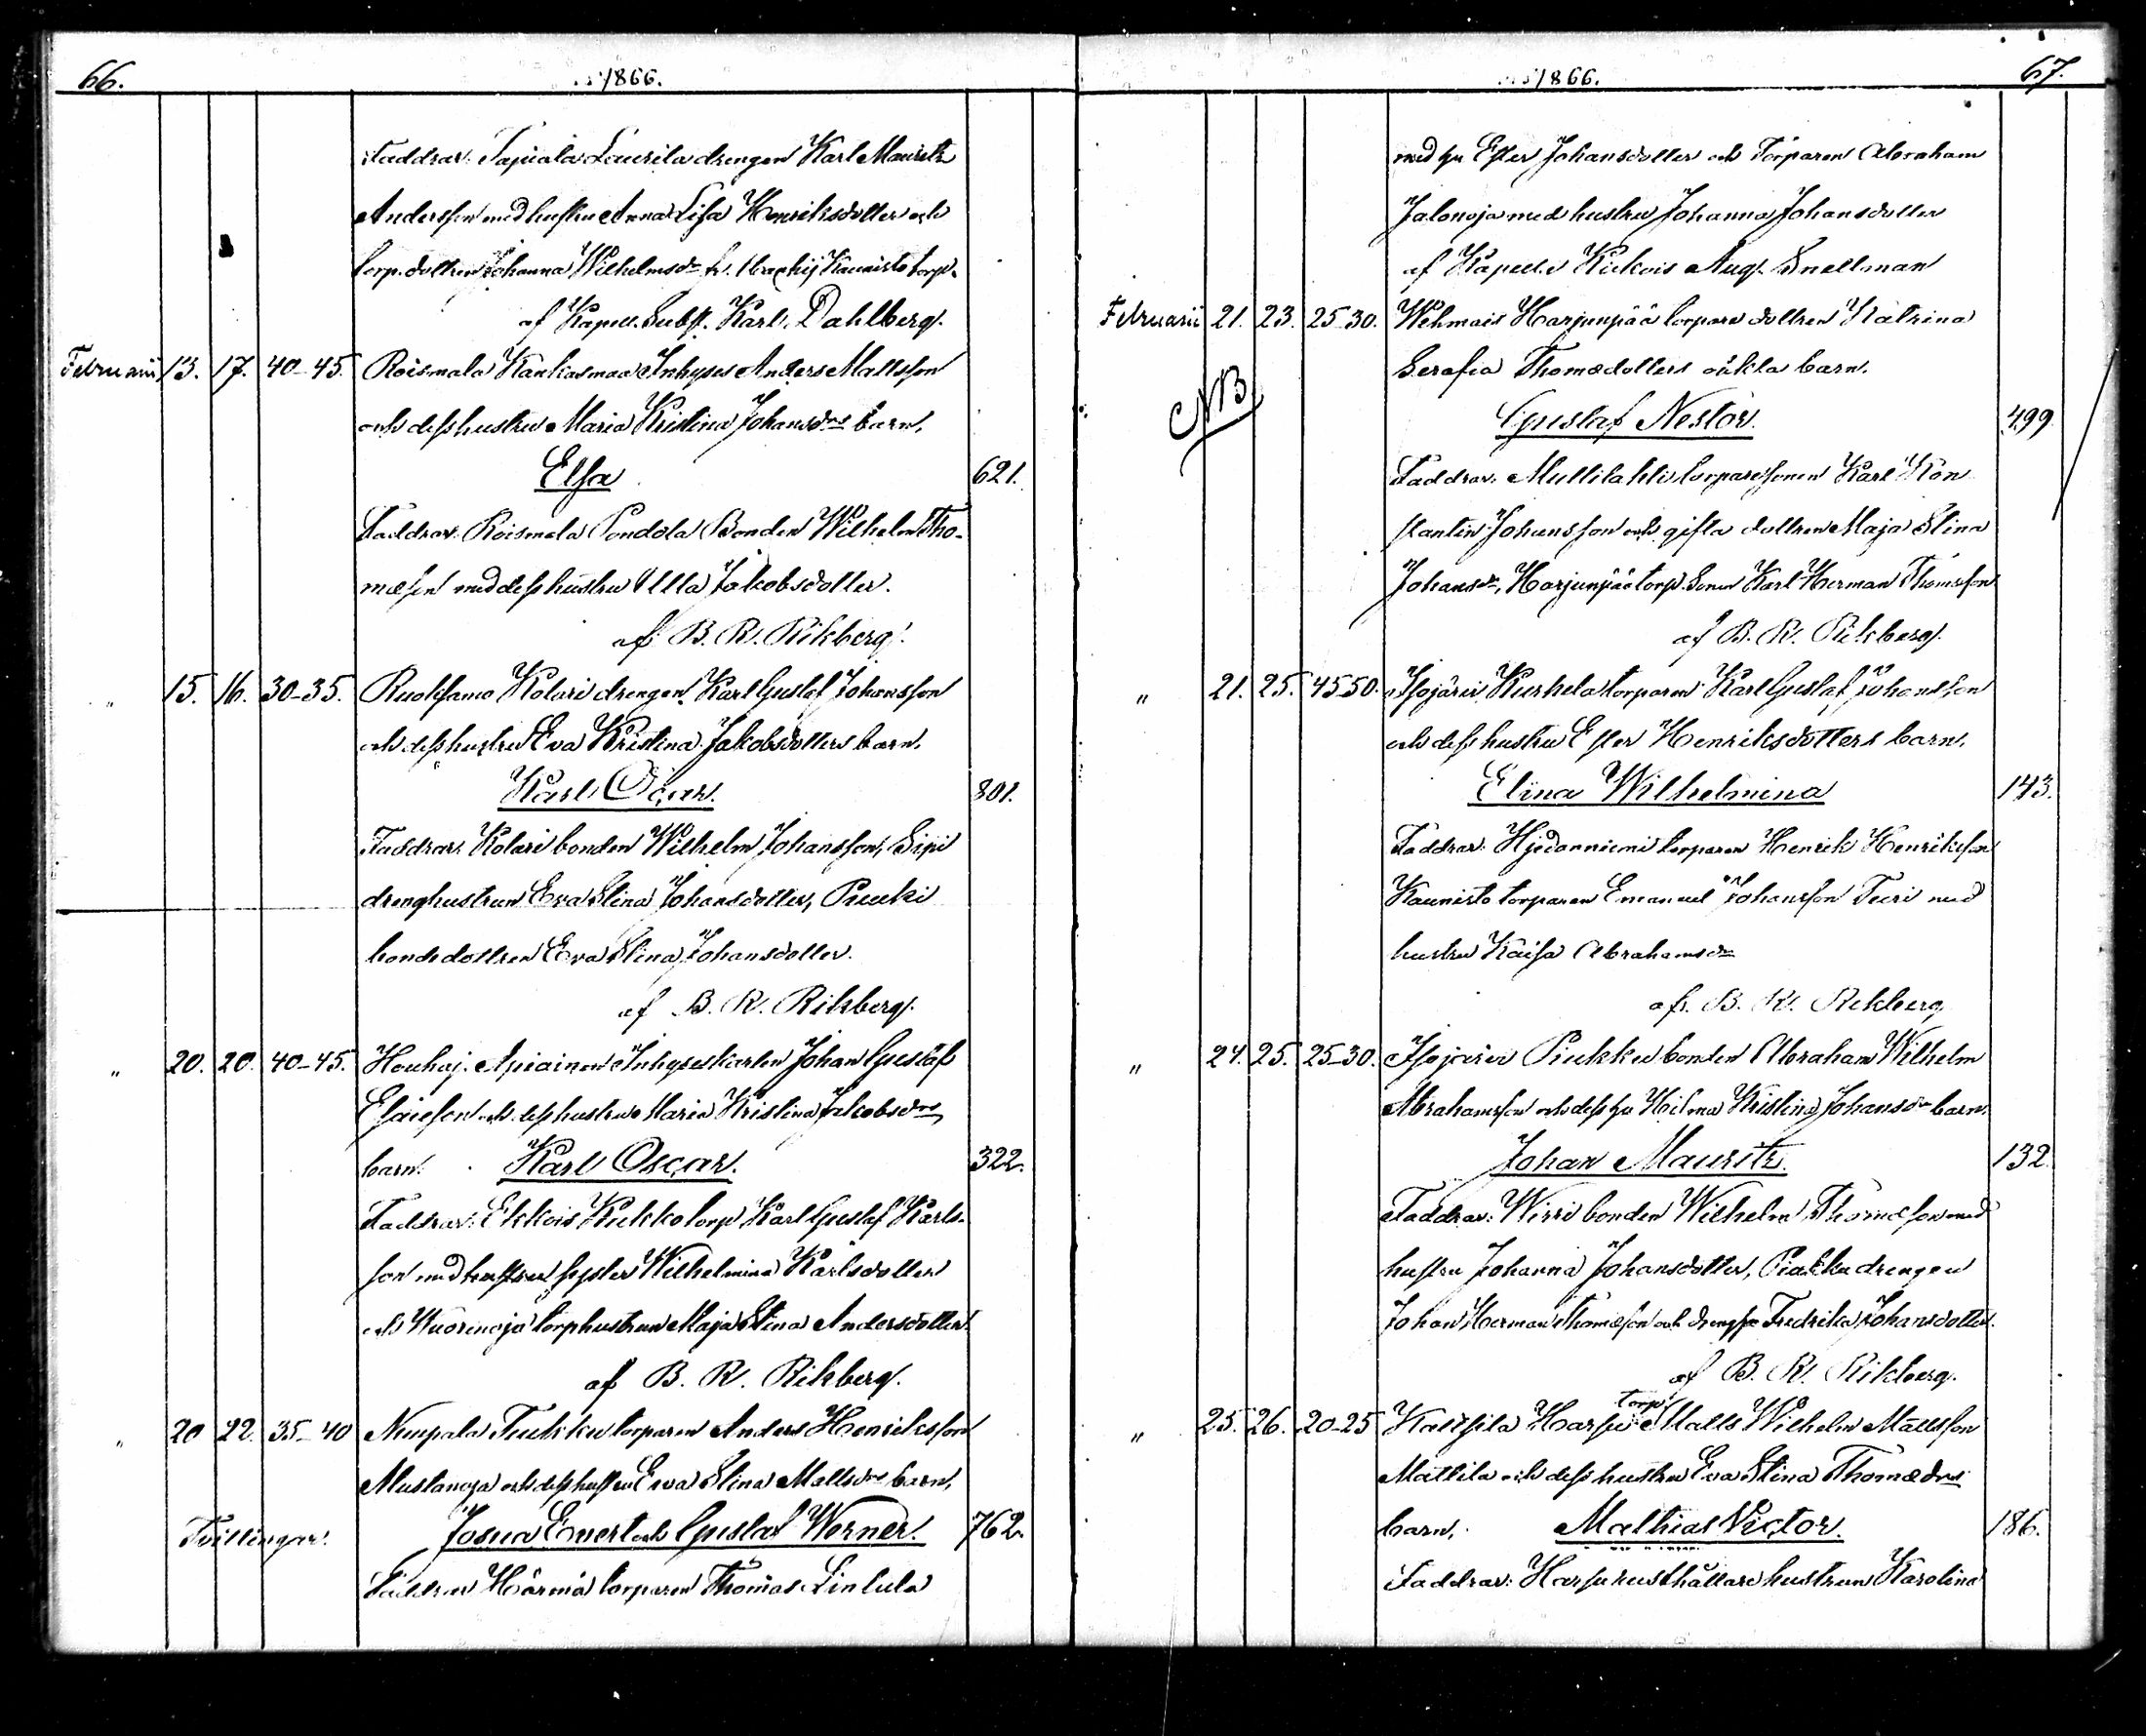 66.
1866.
Faddrar: Tapiala Laurila drengen Karl Mauritz
Andersson med hustru Anna Lisa Henriksdotter och
torp.dottren Johanna Wilhelmsdr fr. Kaunisto torp.
af Kapell. Subst. Karl Dahlberg.
Februarii 13. 17. 40-45. Roismala Kankaanmaa Inhyses Anders Mattsson
och dess hustru Maria Kristina Johansdrs barn,
Elsa 621.
Faddrar: Roismala Pondola Bonden Wilhelm Tho-
mæson med dess hustru Ulla Jakobsdotter.
af B. R. Rikberg.
" 15. 16. 30-35. Ruoksamo Kolari drengen Karl Gustaf Johansson
och dess hustru Eva Kristina Jakobsdotters barn,
Karl Oscar. 801.
Faddrar: Kolari bonden Wilhelm Johansson, Sipi
drenghustrun Eva Stina Johansdotter, Puuki
bondedottren Eva Stina Johansdotter.
af B. R. Rikberg.
" 20. 20. 40-45. Houhaj. Apiainen Inhyseskarlen Johan Gustaf
Esaieson och dess hustru Maria Kristina Jakobsdrs
barn. Karl Oscar. 322.
Faddrar: Ekkois Kukko torp Karl Gustaf Karls-
son med syster Wilhelmina Karlsdotter
och Wuorenoja torphustrun Maja Stina Andersdotter.
af B. R. Rikberg.
" 20 22. 35-40 Nempala Tukku torparen Anders Henriksson
Mustanoja och dess hustru Eva Stina Mattsdrs barn,
Tvillingar. Josua Evert och Gustaf Werner. 762.
Faddrar Härmä torparen Thomas Lintula
1866.
67.
med hu Ester Johansdotter och Torparen Abraham
Jalonoja med hustru Johanna Johansdotter
af Kapell. i Kiikois Aug. Snellman
Februarii 21. 23. 25-30. Wehmais Harjunpää torpare dottren Katrina
Serafia Thomædotters oäkta barn.
NB
Gustaf Nestor. 499
Faddrar: Mullilahti torparesonen Karl Kon
stantin Johansson och gifta dottren Maja Stina
Johansdr, Harjunpää torp. Sonen Karl Herman Thomæson
af B. R. Rikberg.
" 21. 25. 45-50. Isojärvi Kurhela torparen Karl Gustaf Johansson
och dess hustru Ester Henriksdotters barn,
Elina Wilhelmina 143.
Faddrar: torparen Henrik Henriksson
Kaunisto torparen Emanuel Johansson Turi med
hustru Kaisa Abrahamsdr
af. B. R. Rikberg
" 24. 25. 25-30. Isojärvi Piukku bonden Abraham Wilhelm
Abrahamsson och dess hu Hilma Kristina Johansdr barn.
Johan Mauritz. 132.
Faddrar: Wirri bonden Wilhelm Thomæson med
hustru Johanna Johansdotter, Piukku drengen
Johan Herman Thomæson och drenghu Fredrika Johansdotter.
af B. R. Rikberg.
torp.
" 25. 26. 20-25 Kaltsila Harju Matts Wilhelm Mattsson
Mattila och dess hustru Eva Stina Thomædrs
barn, Mathias Victor. 186.
Faddrar: Harju rusthållare hustrun Karolina